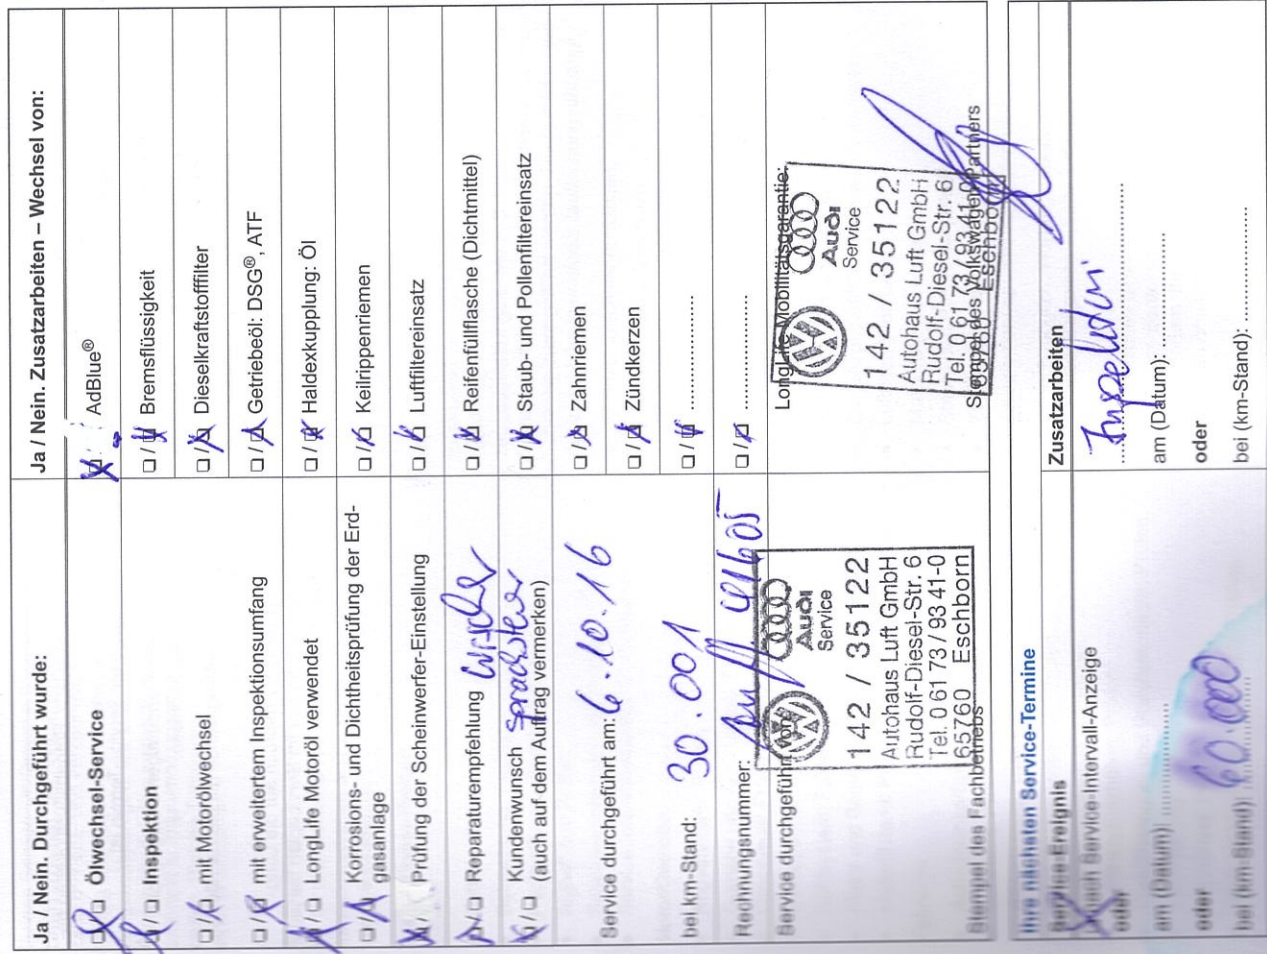 Ja / Nein. Durchgeführt wurde:
Ölwechsel-Service
Inspektion
mit Motorölwechsel
mit erweitertem Inspektionsumfang
LongLife Motoröl verwendet
Korrosions- und Dichtheitsprüfung der Erd-
gasanlage
Prüfung der Scheinwerfer-Einstellung
Reparaturempfehlung Wischer
Kundenwunsch
(auch auf dem Auftrag vermerken)
Service durchgeführt am: 6.10.16
bei km-Stand: 30.001
Rechnungsnummer:
Service durchgeführt von:
Audi
Service
142 / 35122
Autohaus Luft GmbH
Rudolf-Diesel-Str. 6
Tel. 0 61 73 / 93 41-0
65760 Eschborn
Stempel des Fachbetriebs
Ja / Nein. Zusatzarbeiten – Wechsel von:
AdBlue®
Bremsflüssigkeit
Dieselkraftstofffilter
Getriebeöl: DSG®, ATF
Haldexkupplung: Öl
Keilrippenriemen
Luftfiltereinsatz
Reifenfüllflasche (Dichtmittel)
Staub- und Pollenfiltereinsatz
Zahnriemen
Zündkerzen
LongLife Mobilitätsgarantie:
Audi
Service
142 / 35122
Autohaus Luft GmbH
Rudolf-Diesel-Str. 6
Tel. 0 61 73 / 93 41-0
65760 Eschborn
Stempel des Volkswagen Partners
Ihre nächsten Service-Termine
Service-Ereignis
nach Service-Intervall-Anzeige
oder
am (Datum):
oder
bei (km-Stand): 60.000
Zusatzarbeiten
Inspektion
am (Datum):
oder
bei (km-Stand):